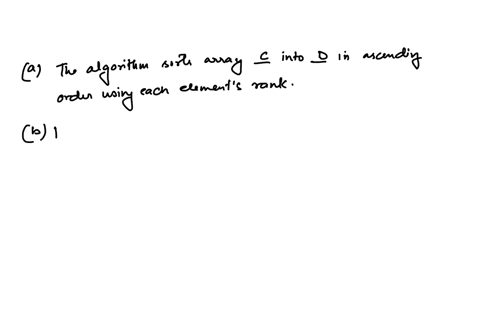 (a) The algorithm sorts array C into D in ascending
order using each element's rank.
(b)